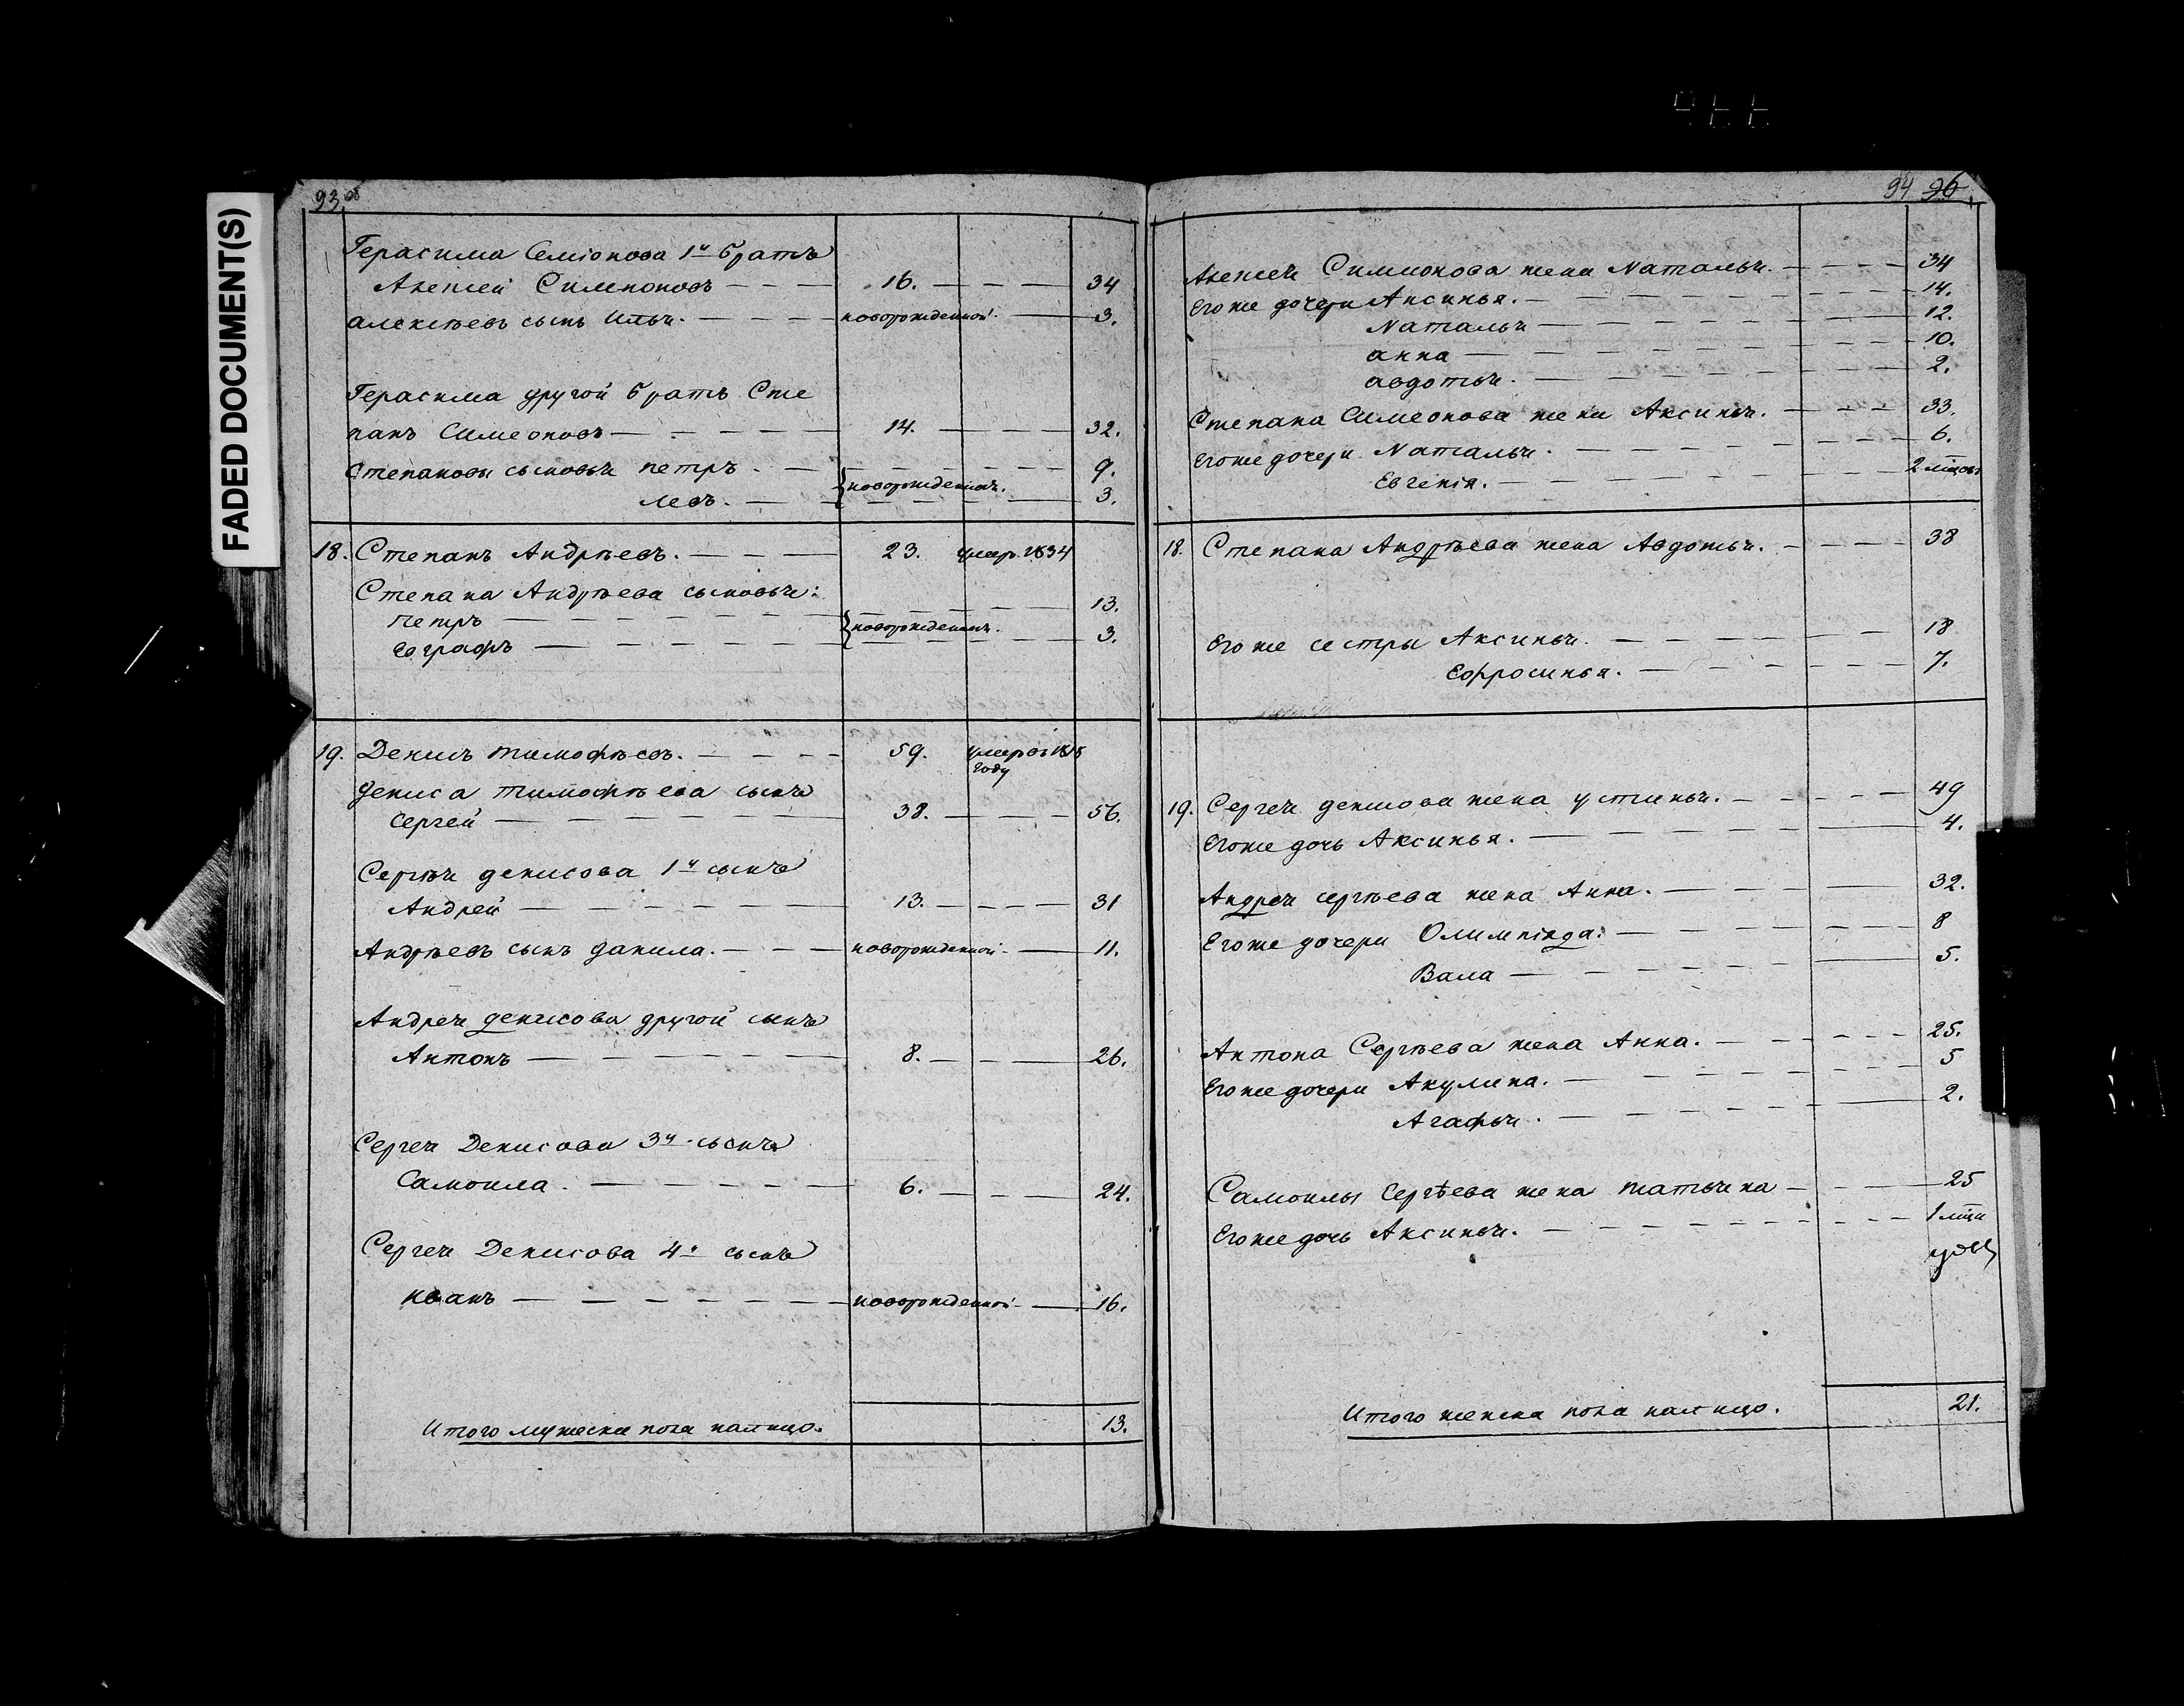 FADED DOCUMENT(S)
93 об
Герасима Семіонова 1й братъ
Алексей Симионовъ 16. 34
Алексѣевъ сынъ Илья. новорожденной 3.
Герасима другой братъ Сте
панъ Симеоновъ 14. 32.
Степановы сыновья петръ. 9.
новорожденныя.
левъ. 3.
18. Степанъ Андрѣевъ. 23. умер. 1834
Степана Андрѣева сыновья:
петръ 13.
новорожденныя.
Евграфъ 3.
19. Денисъ тимофѣевъ. 59. умеръ въ 1818
году
Дениса тимофѣева сынъ
Сергей 38. 56.
Сергѣя денисова 1й сынъ
Андрей 13. 31
Андрѣевъ сынъ данила. новорожденной 11.
Андрея денисова другой сынъ
Антонъ 8. 26.
Сергея Денисова 3й сынъ
Самоила. 6. 24.
Сергея Денисова 4й сынъ
иванъ новорожденной 16.
Итого мужеска пола налицо. 13.
94 96
Алексея Симионова жена Наталья. 34
Его же дочери Аксинья. 14.
Наталья 12.
анна 10.
авдотья. 2.
Степана Симеонова жена Аксинья. 33.
Его же дочери Наталья. 6.
Евгенія. 2 мѣсяцовъ
18. Степана Андрѣева жена Авдотья. 38
Его же сестры Аксинья. 18
Ефросинья. 7.
19. Сергея денисова жена устинья. 49
Его же дочь Аксинья. 4.
Андрея сергѣева жена Анна. 32.
Его же дочери Олимпіада: 8
Васа 5.
Антона Сергѣева жена Анна. 25.
Его же дочери Акулина. 5
Агафья. 2.
Самоилы Сергѣева жена татьяна 25
Его же дочь Аксинья. 1 мѣся
цовъ
Итого женска пола налицо. 21.